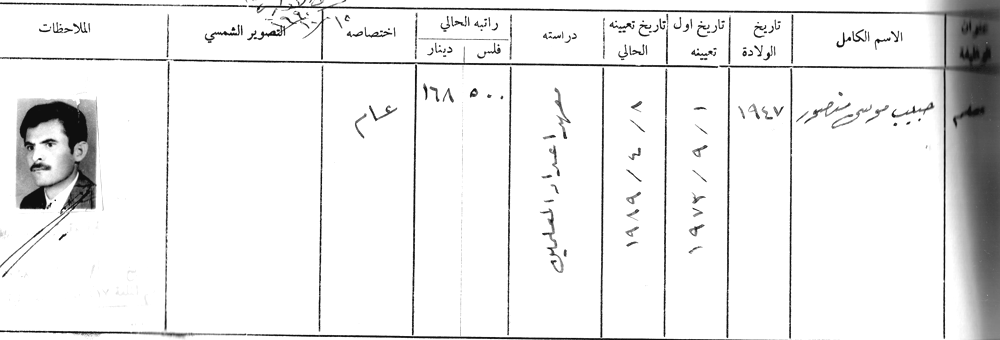 عنوان الوظيفة
الاسم الكامل
تاريخ الولادة
تاريخ اول تعيينه
تاريخ تعيينه الحالي
دراسته
راتبه الحالي
فلس
دينار
اختصاصه
التصوير الشمسي
الملاحظات
معلم
حبيب موسى منصور
١٩٤٧
١ / ٩ / ١٩٧٣
٨ / ٤ / ١٩٨٩
معهد اعداد المعلمين
٥٠٠
١٦٨
عام